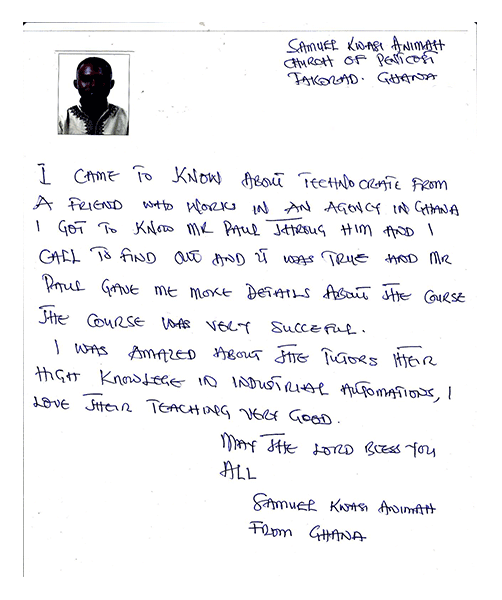 SAMUEL KWASI ANIMAH
CHURCH OF PENICOST
TAKORAD. GHANA
I CAME TO KNOW ABOUT TECHNOCRATE FROM
A FRIEND WHO WORKS IN AN AGENCY IN GHANA
I GOT TO KNOW MR PAUL THROUG HIM AND I
CALL TO FIND OUT AND IT WAS TRUE AND MR
PAUL GAVE ME MORE DETAILS ABOUT THE COURSE
THE COURSE WAS VERY SUCCEFUL.
I WAS AMAZED ABOUT THE TUTORS THEIR
HIGHT KNOWLEGE IN INDUSTRIAL AUTOMATIONS, I
LOVE THEIR TEACHING VERY GOOD.
MAY THE LORD BLESS YOU
ALL
SAMUEL KWASI ANIMAH
FROM GHANA